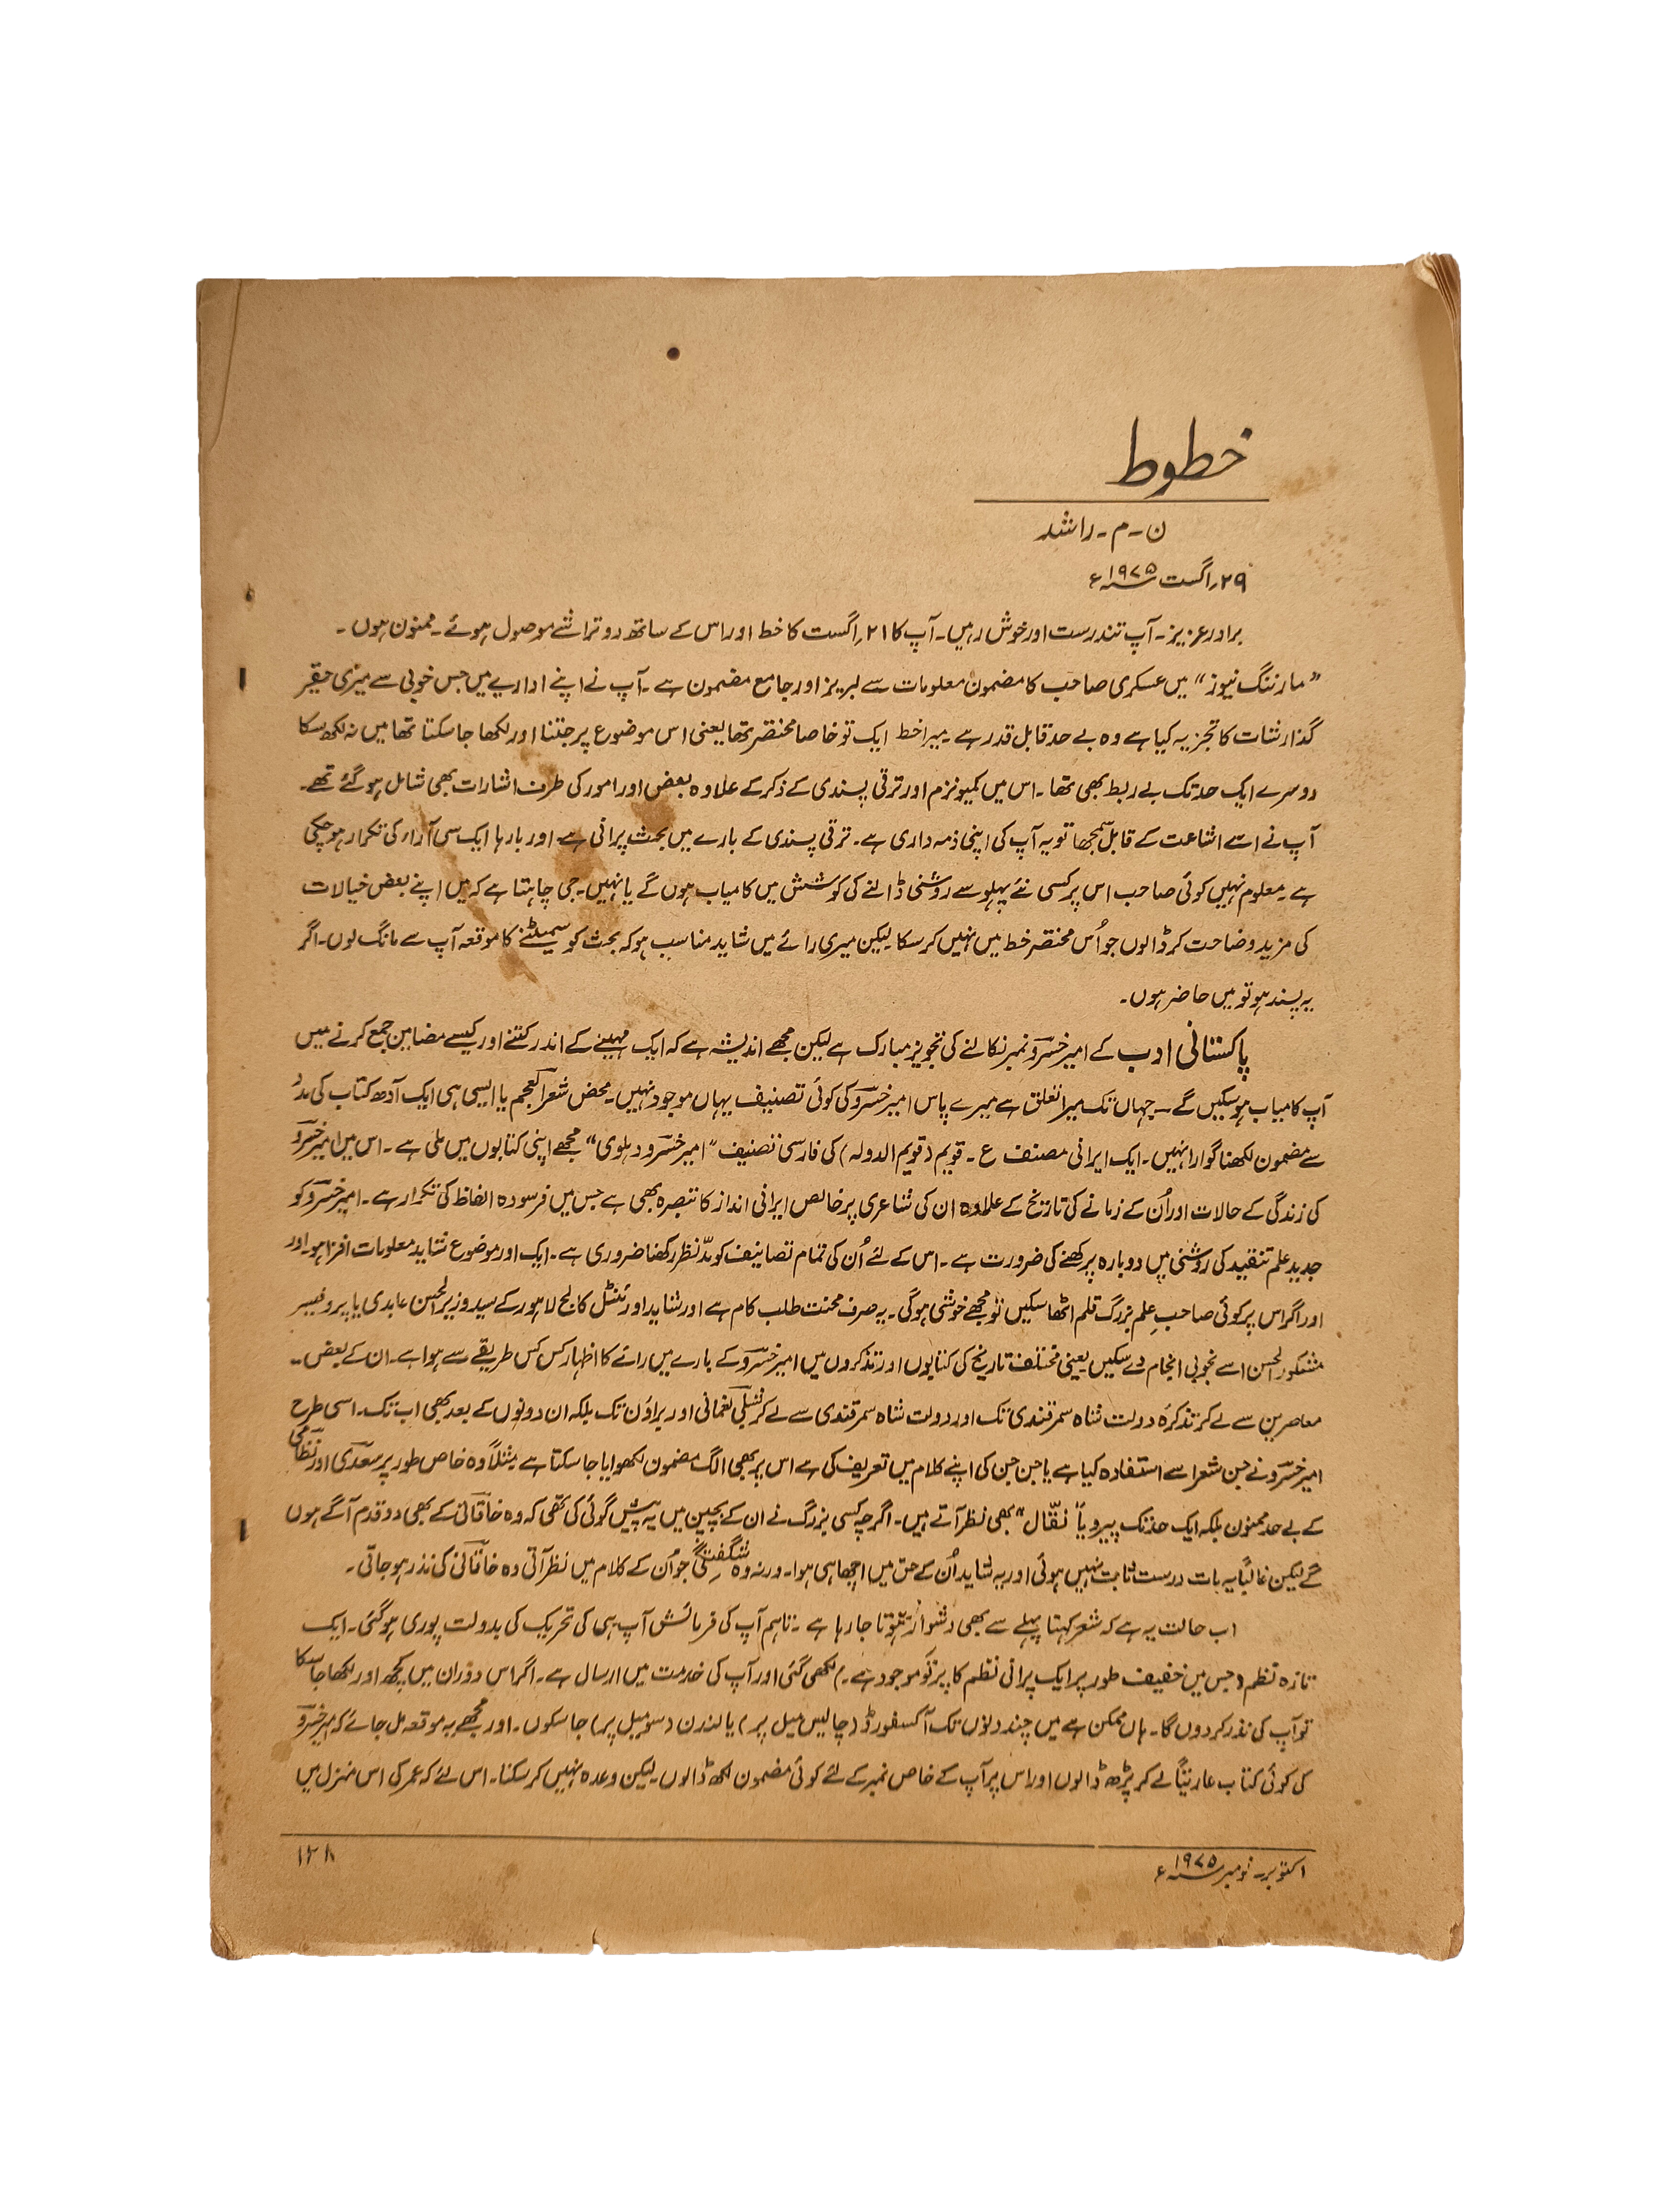 خطوط
ن۔م۔راشد
۲۹؍اگست ۱۹۷۵ء
برادر عزیز۔ آپ تندرست اور خوش رہیں۔ آپ کا ۲۱؍اگست کا خط اور اس کے ساتھ دو تراشے موصول ہوئے۔ ممنون ہوں۔
"مارننگ نیوز" میں عسکری صاحب کا مضمون معلومات سے لبریز اور جامع مضمون ہے۔ آپ نے اپنے اداریے میں جس خوبی سے میری حقیر
گذارشات کا تجزیہ کیا ہے وہ بے حد قابل قدر ہے۔ میرا خط ایک تو خاصا مختصر تھا یعنی اس موضوع پر جتنا اور لکھا جا سکتا تھا میں نہ لکھ سکا
دوسرے ایک حد تک بے ربط بھی تھا۔ اس میں کمیونزم اور ترقی پسندی کے ذکر کے علاوہ بعض اور امور کی طرف اشارات بھی شامل ہو گئے تھے۔
آپ نے اسے اشاعت کے قابل سمجھا تو یہ آپ کی اپنی ذمہ داری ہے۔ ترقی پسندی کے بارے میں بحث پرانی ہے۔ اور بارہا ایک سی آراء کی تکرار ہو چکی
ہے۔ معلوم نہیں کوئی صاحب اس پر کسی نئے پہلو سے روشنی ڈالنے کی کوشش میں کامیاب ہوں گے یا نہیں۔ جی چاہتا ہے کہ میں اپنے بعض خیالات
کی مزید وضاحت کر ڈالوں جو اُس مختصر خط میں نہیں کر سکا لیکن میری رائے میں شاید مناسب ہو کہ بحث کو سمیٹنے کا موقعہ آپ سے مانگ لوں۔ اگر
یہ پسند ہو تو میں حاضر ہوں۔
پاکستانی ادب کے امیر خسرو نمبر نکالنے کی تجویز مبارک ہے لیکن مجھے اندیشہ ہے کہ ایک مہینے کے اندر کتنے اور کیسے مضامین جمع کرنے میں
آپ کامیاب ہو سکیں گے۔ جہاں تک میرا تعلق ہے میرے پاس امیر خسرو کی کوئی تصنیف یہاں موجود نہیں۔ محض شعر العجم یا ایسی ہی ایک آدھ کتاب کی مدد
سے مضمون لکھنا گوارا نہیں۔ ایک ایرانی مصنف ع۔ قویم (قویم الدولہ) کی فارسی تصنیف "امیر خسرو دہلوی" مجھے اپنی کتابوں میں ملی ہے۔ اس میں امیر خسرو
کی زندگی کے حالات اور اُن کے زمانے کی تاریخ کے علاوہ ان کی شاعری پر خالص ایرانی انداز کا تبصرہ بھی ہے جس میں فرسودہ الفاظ کی تکرار ہے۔ امیر خسرو کو
جدید علم تنقید کی روشنی میں دوبارہ پرکھنے کی ضرورت ہے۔ اس کے لئے اُن کی تمام تصانیف کو مدّ نظر رکھنا ضروری ہے۔ ایک اور موضوع شاید معلومات افزا ہو اور
اور اگر اس پر کوئی صاحبِ علم بزرگ قلم اٹھا سکیں تو مجھے خوشی ہو گی۔ یہ صرف محنت طلب کام ہے اور شاید اورئنٹل کالج لاہور کے سید وزیر الحسن عابدی یا پروفیسر
مشکور الحسن اسے بخوبی انجام دے سکیں یعنی مختلف تاریخ کی کتابوں اور تذکروں میں امیر خسرو کے بارے میں رائے کا اظہار کس کس طریقے سے ہوا ہے۔ ان کے بعض۔۔
معاصرین سے لے کر تذکرہ دولت شاہ سمرقندی تک اور دولت شاہ سمرقندی سے لے کر شبلی نعمانی اور براؤن تک بلکہ ان دونوں کے بعد بھی اب تک۔ اسی طرح
امیر خسرو نے جن شعرا سے استفادہ کیا ہے یا جن جن کی اپنے کلام میں تعریف کی ہے اس پر بھی الگ مضمون لکھوایا جا سکتا ہے مثلاً وہ خاص طور پر سعدی اور نظامی
کے بے حد ممنون بلکہ ایک حد تک پیرو یا "نقّال" بھی نظر آتے ہیں۔ اگرچہ کسی بزرگ نے ان کے بچپن میں یہ پیش گوئی کی تھی کہ وہ خاقانی کے بھی دو قدم آگے ہوں
گے لیکن غالباً یہ بات درست ثابت نہیں ہوئی اور یہ شاید اُن کے حق میں اچھا ہی ہوا۔ ورنہ وہ شگفتگی جو ان کے کلام میں نظر آتی وہ خاقانی کی نذر ہو جاتی۔
اب حالت یہ ہے کہ شعر کہنا پہلے سے بھی دشوار تر ہوتا جا رہا ہے۔ تاہم آپ کی فرمائش آپ ہی کی تحریک کی بدولت پوری ہو گئی۔ ایک
تازہ نظم (جس میں خفیف طور پر ایک پرانی نظم کا پرتو موجود ہے۔) لکھی گئی اور آپ کی خدمت میں ارسال ہے۔ اگر اس دوران میں کچھ اور لکھا جا سکا
تو آپ کی نذر کر دوں گا۔ ہاں ممکن ہے میں چند دنوں تک آکسفورڈ (چالیس میل پر) یا لندن (سو میل پر) جا سکوں۔ اور مجھے یہ موقعہ مل جائے کہ امیر خسرو
کی کوئی کتاب عاریتاً لے کر پڑھ ڈالوں اور اس پر آپ کے خاص نمبر کے لئے کوئی مضمون لکھ ڈالوں۔ لیکن وعدہ نہیں کر سکتا۔ اس لئے کہ عمر کی اس منزل میں
اکتوبر۔ نومبر ۱۹۷۵ء
۱۲۸